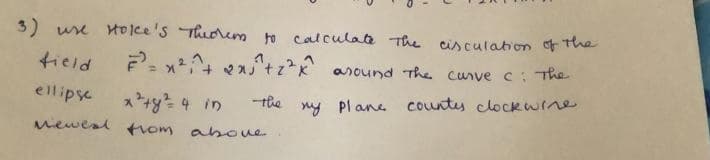 3) use Stoke's Theorem to calculate The circulation of the
field F⃗ = x² î + 2x ĵ + z² k̂ around The curve c: The
ellipse x²+y² = 4 in the xy plane counter clockwise
viewed from above